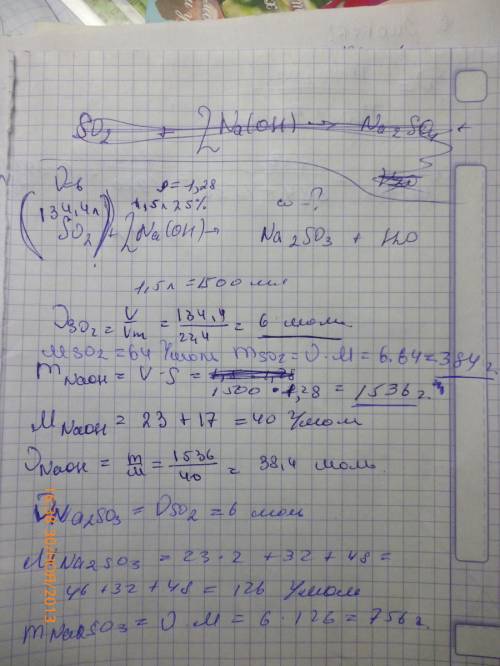 SO2 + 2Na(OH) → Na2SO4 +
H2O
V=6 ρ=1,28
134,4л 1,5л 25% ω-?
SO2 + 2Na(OH) → Na2SO3 + H2O
1,5л = 1500 мл
νSO2 = V/Vm = 134,4/22,4 = 6 моль
MSO2 = 64 г/моль mSO2 = ν·M = 6·64 = 384 г.
mNaOH = V·ρ = 1500·1,28 = 1536 г.
MNaOH = 23 + 17 = 40 г/моль
νNaOH = m/M = 1536/40 = 38,4 моль
νNa2SO3 = νSO2 = 6 моль
MNa2SO3 = 23·2 + 32 + 48 =
46 + 32 + 48 = 126 г/моль
mNa2SO3 = ν·M = 6·126 = 756 г.